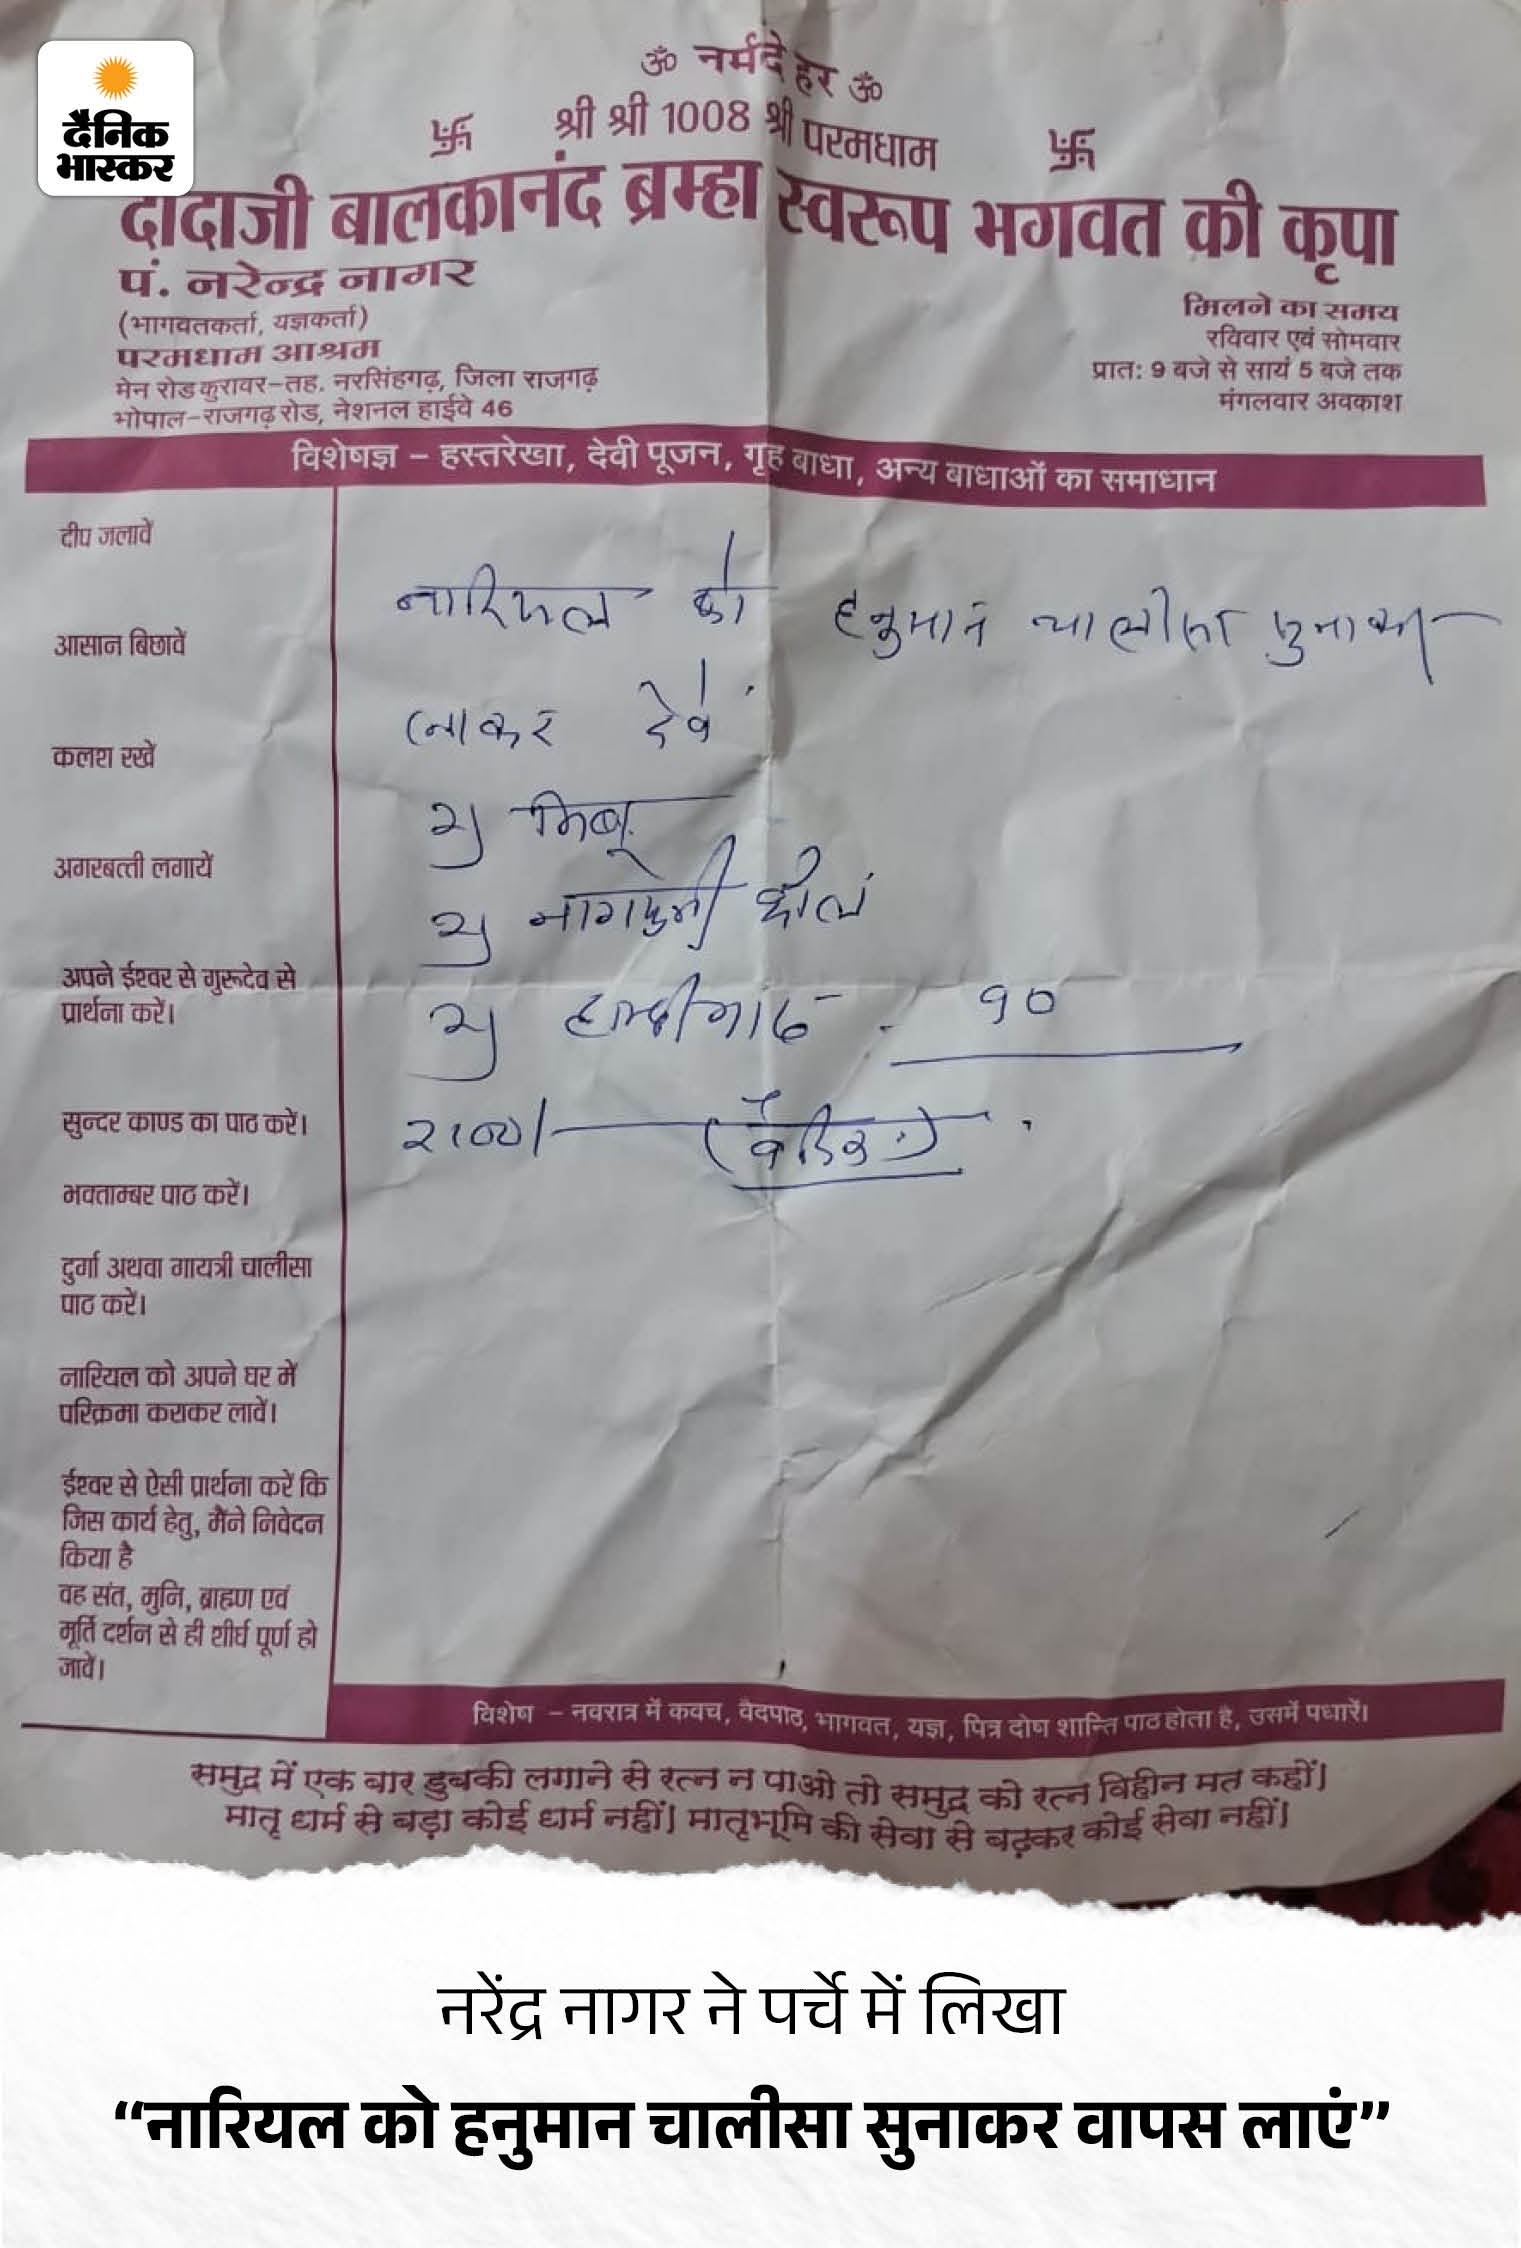 दैनिक
भास्कर
ॐ नर्मदे हर ॐ
श्री श्री 1008 श्री परमधाम
दादाजी बालकानंद ब्रम्हा स्वरूप भगवत की कृपा
पं. नरेन्द्र नागर
(भागवतकर्ता, यज्ञकर्ता)
परमधाम आश्रम
मेन रोड कुरावर-तह. नरसिंहगढ़, जिला राजगढ़
भोपाल-राजगढ़ रोड, नेशनल हाईवे 46
मिलने का समय
रविवार एवं सोमवार
प्रात: 9 बजे से सायं 5 बजे तक
मंगलवार अवकाश
विशेषज्ञ – हस्तरेखा, देवी पूजन, गृह बाधा, अन्य बाधाओं का समाधान
दीप जलावें
आसान बिछावें
कलश रखें
अगरबत्ती लगायें
अपने ईश्वर से गुरूदेव से
प्रार्थना करें।
सुन्दर काण्ड का पाठ करें।
भक्ताम्बर पाठ करें।
दुर्गा अथवा गायत्री चालीसा
पाठ करें।
नारियल को अपने घर में
परिक्रमा कराकर लावें।
ईश्वर से ऐसी प्रार्थना करें कि
जिस कार्य हेतु, मैंने निवेदन
किया है
वह संत, मुनि, ब्राह्मण एवं
मूर्ति दर्शन से ही शीर्घ पूर्ण हो
जावें।
नारियल को हनुमान चालीसा सुनाकर
लाकर देवें
हल्दीगांठ - १०
विशेष – नवरात्र में कवच, वैदपाठ, भागवत, यज्ञ, पित्र दोण शान्ति पाठ होता है, उसमें पधारें।
समुद्र में एक बार डुबकी लगाने से रत्न न पाओ तो समुद्र को रत्न विहीन मत कहों।
मातृ धर्म से बड़ा कोई धर्म नहीं। मातृभूमि की सेवा से बढ़कर कोई सेवा नहीं।
नरेंद्र नागर ने पर्चे में लिखा
“नारियल को हनुमान चालीसा सुनाकर वापस लाएं”